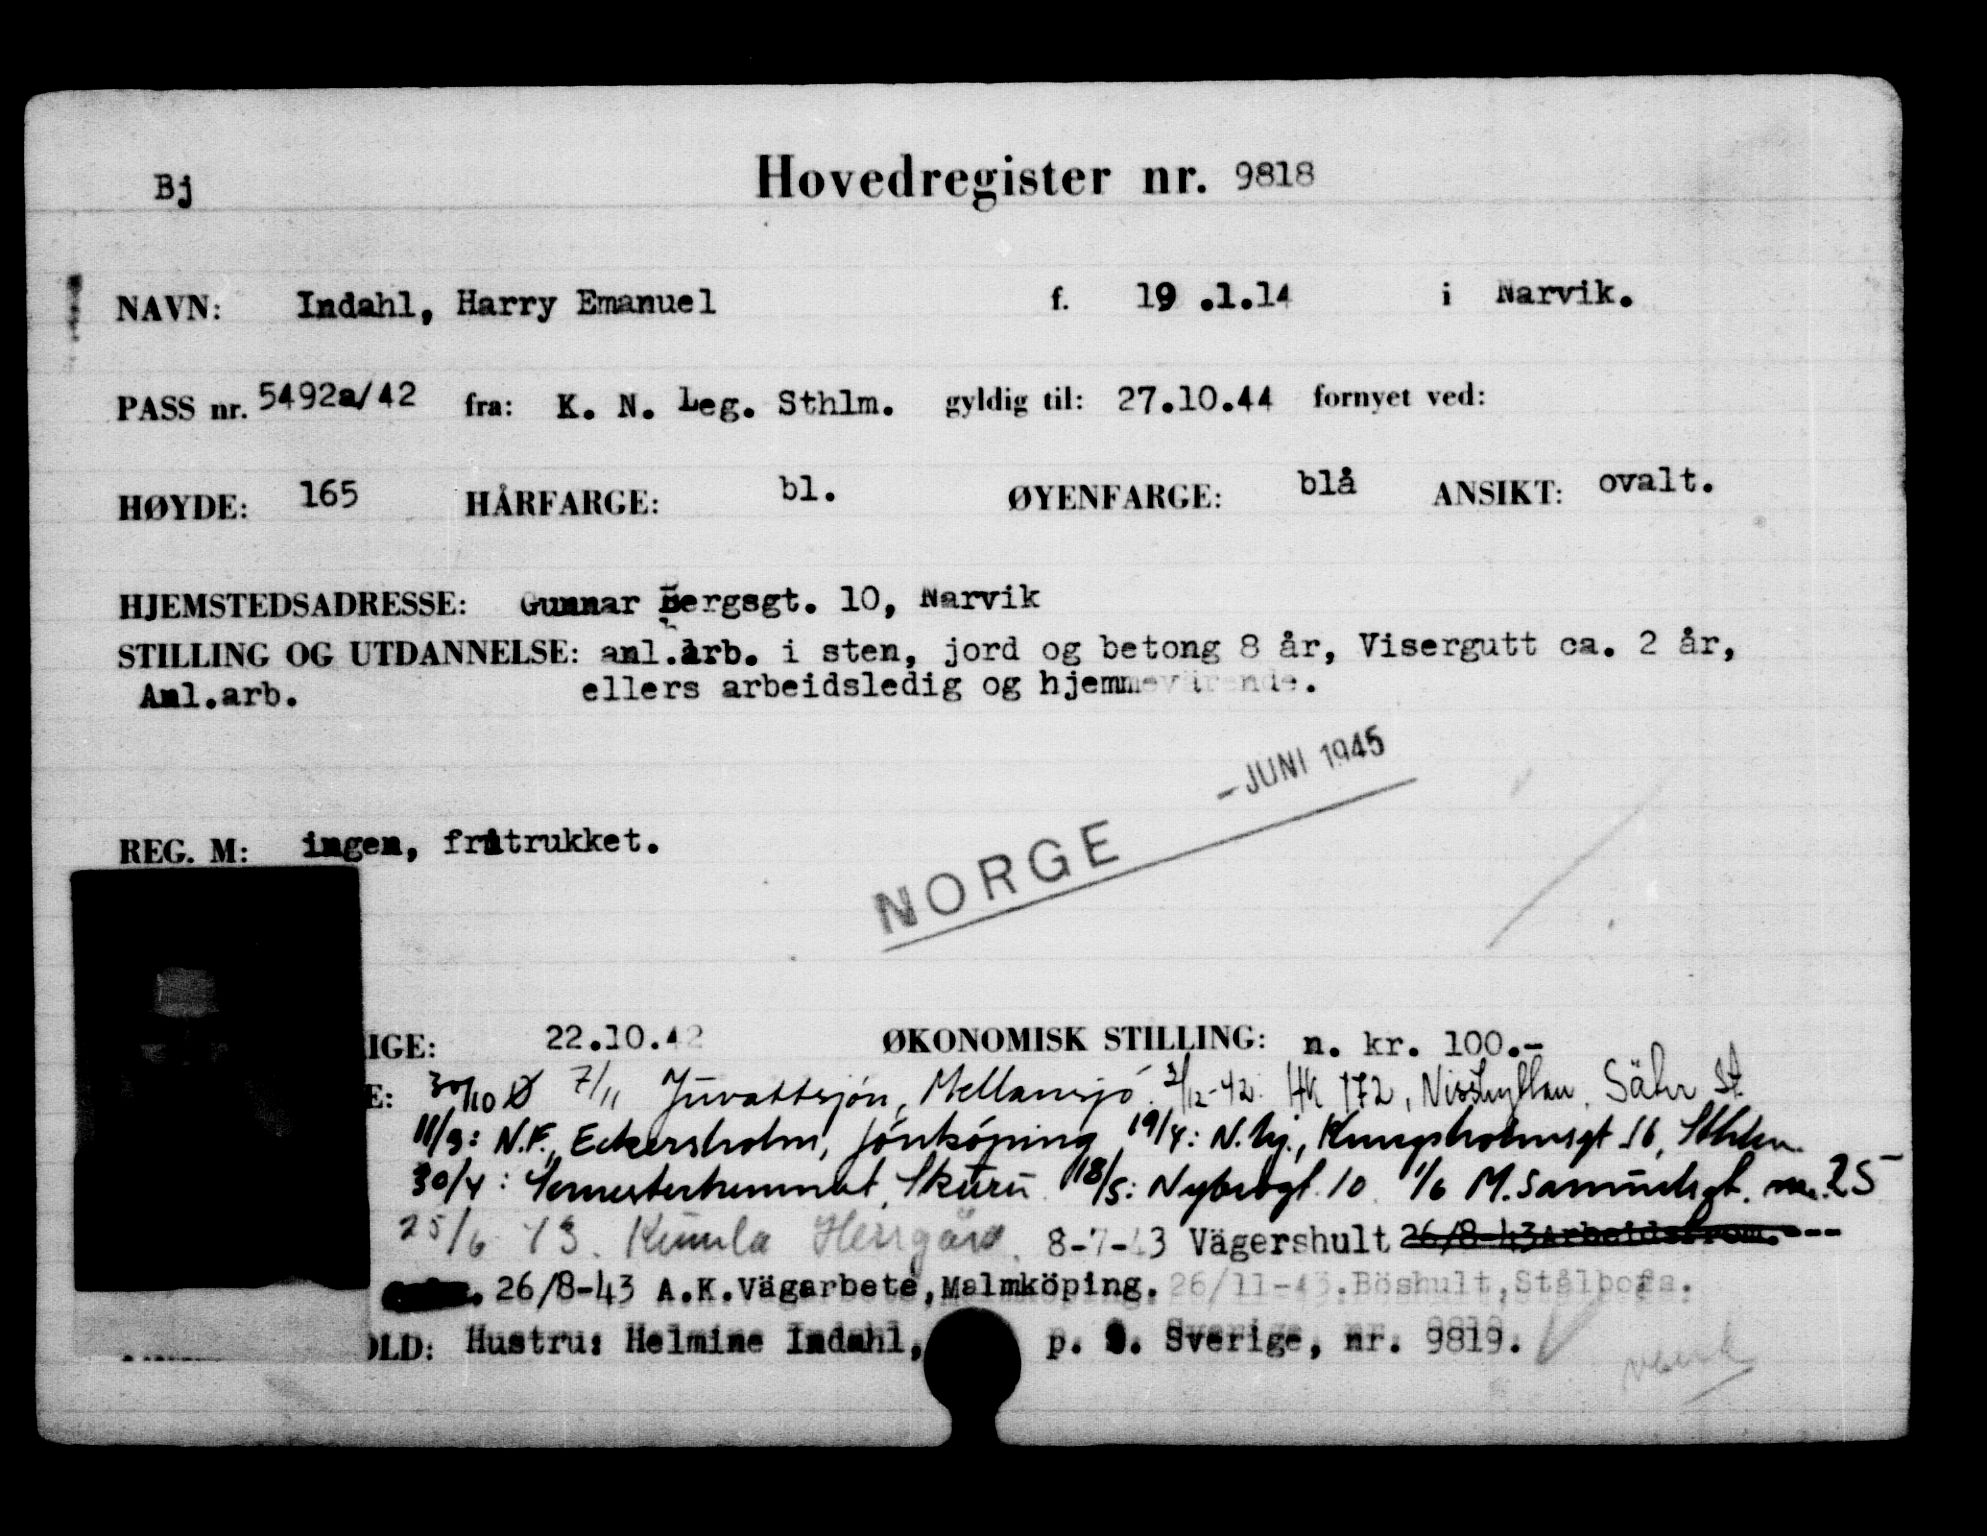 Bj
Hovedregister nr. 9818
NAVN: Indahl, Harry Emanuel f. 19 .1.14 i Narvik.
PASS nr. 5492a/42 fra: K. N. Leg. Sthlm. gyldig til: 27.10.44 fornyet ved:
HØYDE: 165 HÅRFARGE: bl. ØYENFARGE: blå ANSIKT: ovalt.
HJEMSTEDSADRESSE: Gunnar Bergsgt. 10, Narvik
STILLING OG UTDANNELSE: anl.arb. i sten, jord og betong 8 år, Visergutt ca. 2 år,
Anl.arb. ellers arbeidsledig og hjemmeværende.
- JUNI 1945
NORGE
REG. M: ingen, fratrukket.
IGE: 22.10.42 ØKONOMISK STILLING: n. kr. 100.-
E: 30/10 Ø 7/11 Juvattsjön, Mellansjö. 3/12-42. HK 172, Sähr
11/3: N.F., Eckersholm, Jönköping 19/4: N.hj., Kungsholmsgt 56, Sthlm.
30/4: Semesterhemmet, Skuru 18/5: Nybrogt. 10 1/6 M. Samuelsgt. nr. 25
25/6 43. Kumla Herrgård. 8-7-43 Vägershult 26/8-43Arbeidsfrom.---
26/8-43 A.K.Vägarbete, Malmköping. 26/11-43.Böshult,Stålboga.
OLD: Hustru: Helmine Indahl, p. t. Sverige, nr. 9819.